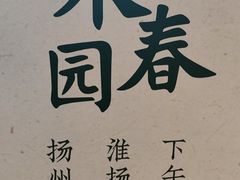 春
园
下午
淮扬
扬州